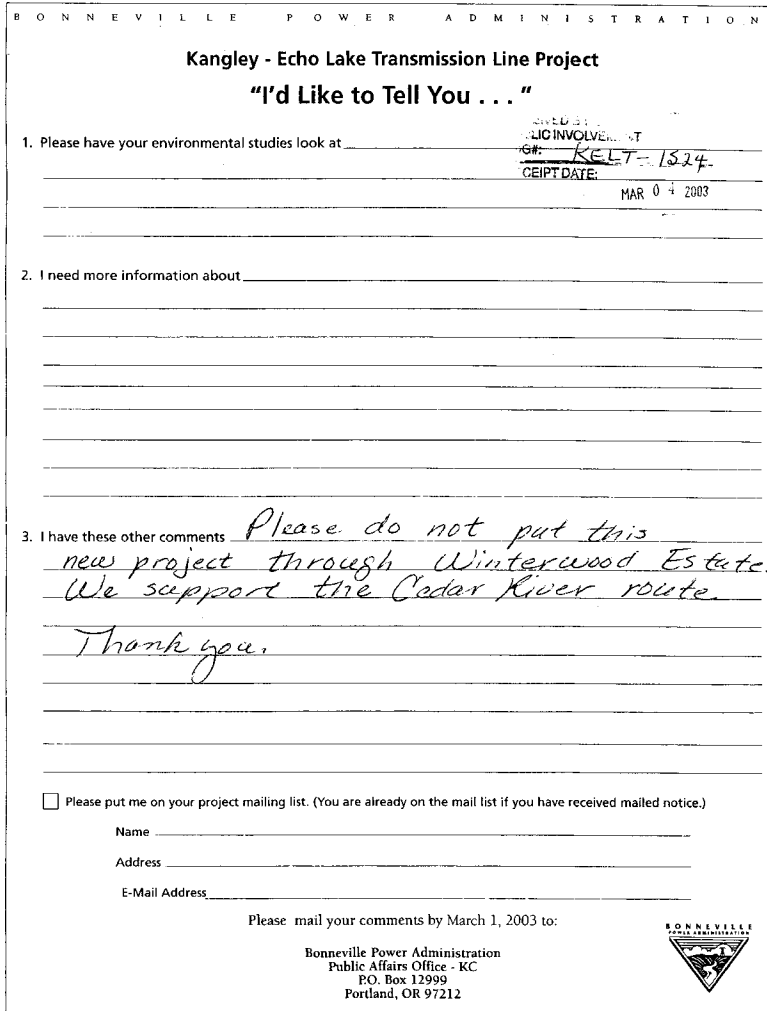 BONNEVILLE POWER ADMINISTRATION
Kangley - Echo Lake Transmission Line Project
"I'd Like to Tell You . . . "
LIC INVOLVE T
1. Please have your environmental studies look at
G#: KELT-1524
CEIPT DATE:
MAR 04 2003
2. I need more information about
3. I have these other comments Please do not put this
new project through Winterwood Estate.
We support the Cedar River route.
Thank you.
Please put me on your project mailing list. (You are already on the mail list if you have received mailed notice.)
Name
Address
E-Mail Address
Please mail your comments by March 1, 2003 to:
Bonneville Power Administration
Public Affairs Office - KC
P.O. Box 12999
Portland, OR 97212
BONNEVILLE
POWER ADMINISTRATION